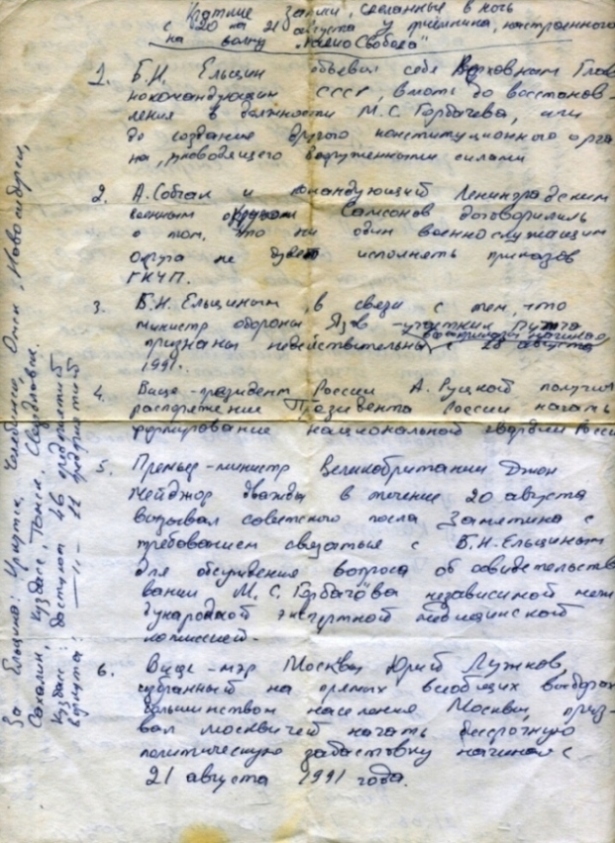 Краткие записи, сделанные в ночь
с 20 на 21 августа у приёмника, настроенного
на волну "Радио Свобода"
1. Б.Н. Ельцин объявил себя Верховным Глав
нокомандующим СССР, вплоть до восстанов
ления в должности М.С. Горбачева, или
до создания другого конституционного орга
на, руководящего вооруженными силами
2. А. Собчак и командующий Ленинградским
военным округом Самсонов договорились
о том, что ни один военнослужащий
округа не будет исполнять приказов
ГКЧП.
3. Б.Н. Ельциным, в связи с тем, что
министр обороны Язов - участник путча
признаны недействительны с 20 августа
1991.
4. Вице-президент России А. Руцкой получил
распоряжение Президента России начать
формирование национальной гвардии России
5. Премьер-министр Великобритании Джон
Мейджор дважды в течение 20 августа
вызывал советского посла Замятина с
требованием связаться с Б.Н. Ельциным
для обсуждения вопроса об освидетельство
вании М.С. Горбачёва независимой меж
дународной экспертной медицинской
комиссией.
6. Вице-мэр Москвы Юрий Лужков,
избранный на прямых всеобщих выборах
большинством населения Москвы, приз-
вал москвичей начать бессрочную
политическую забастовку начиная с
21 августа 1991 года.
За Ельцина: Иркутск, Челябинск, Омск, Новосибирск,
Сахалин, Кузбасс, Томск, Свердловск.
Кузбасс: бастуют 46 предприятий
Воркута: —"— 11 предприятий